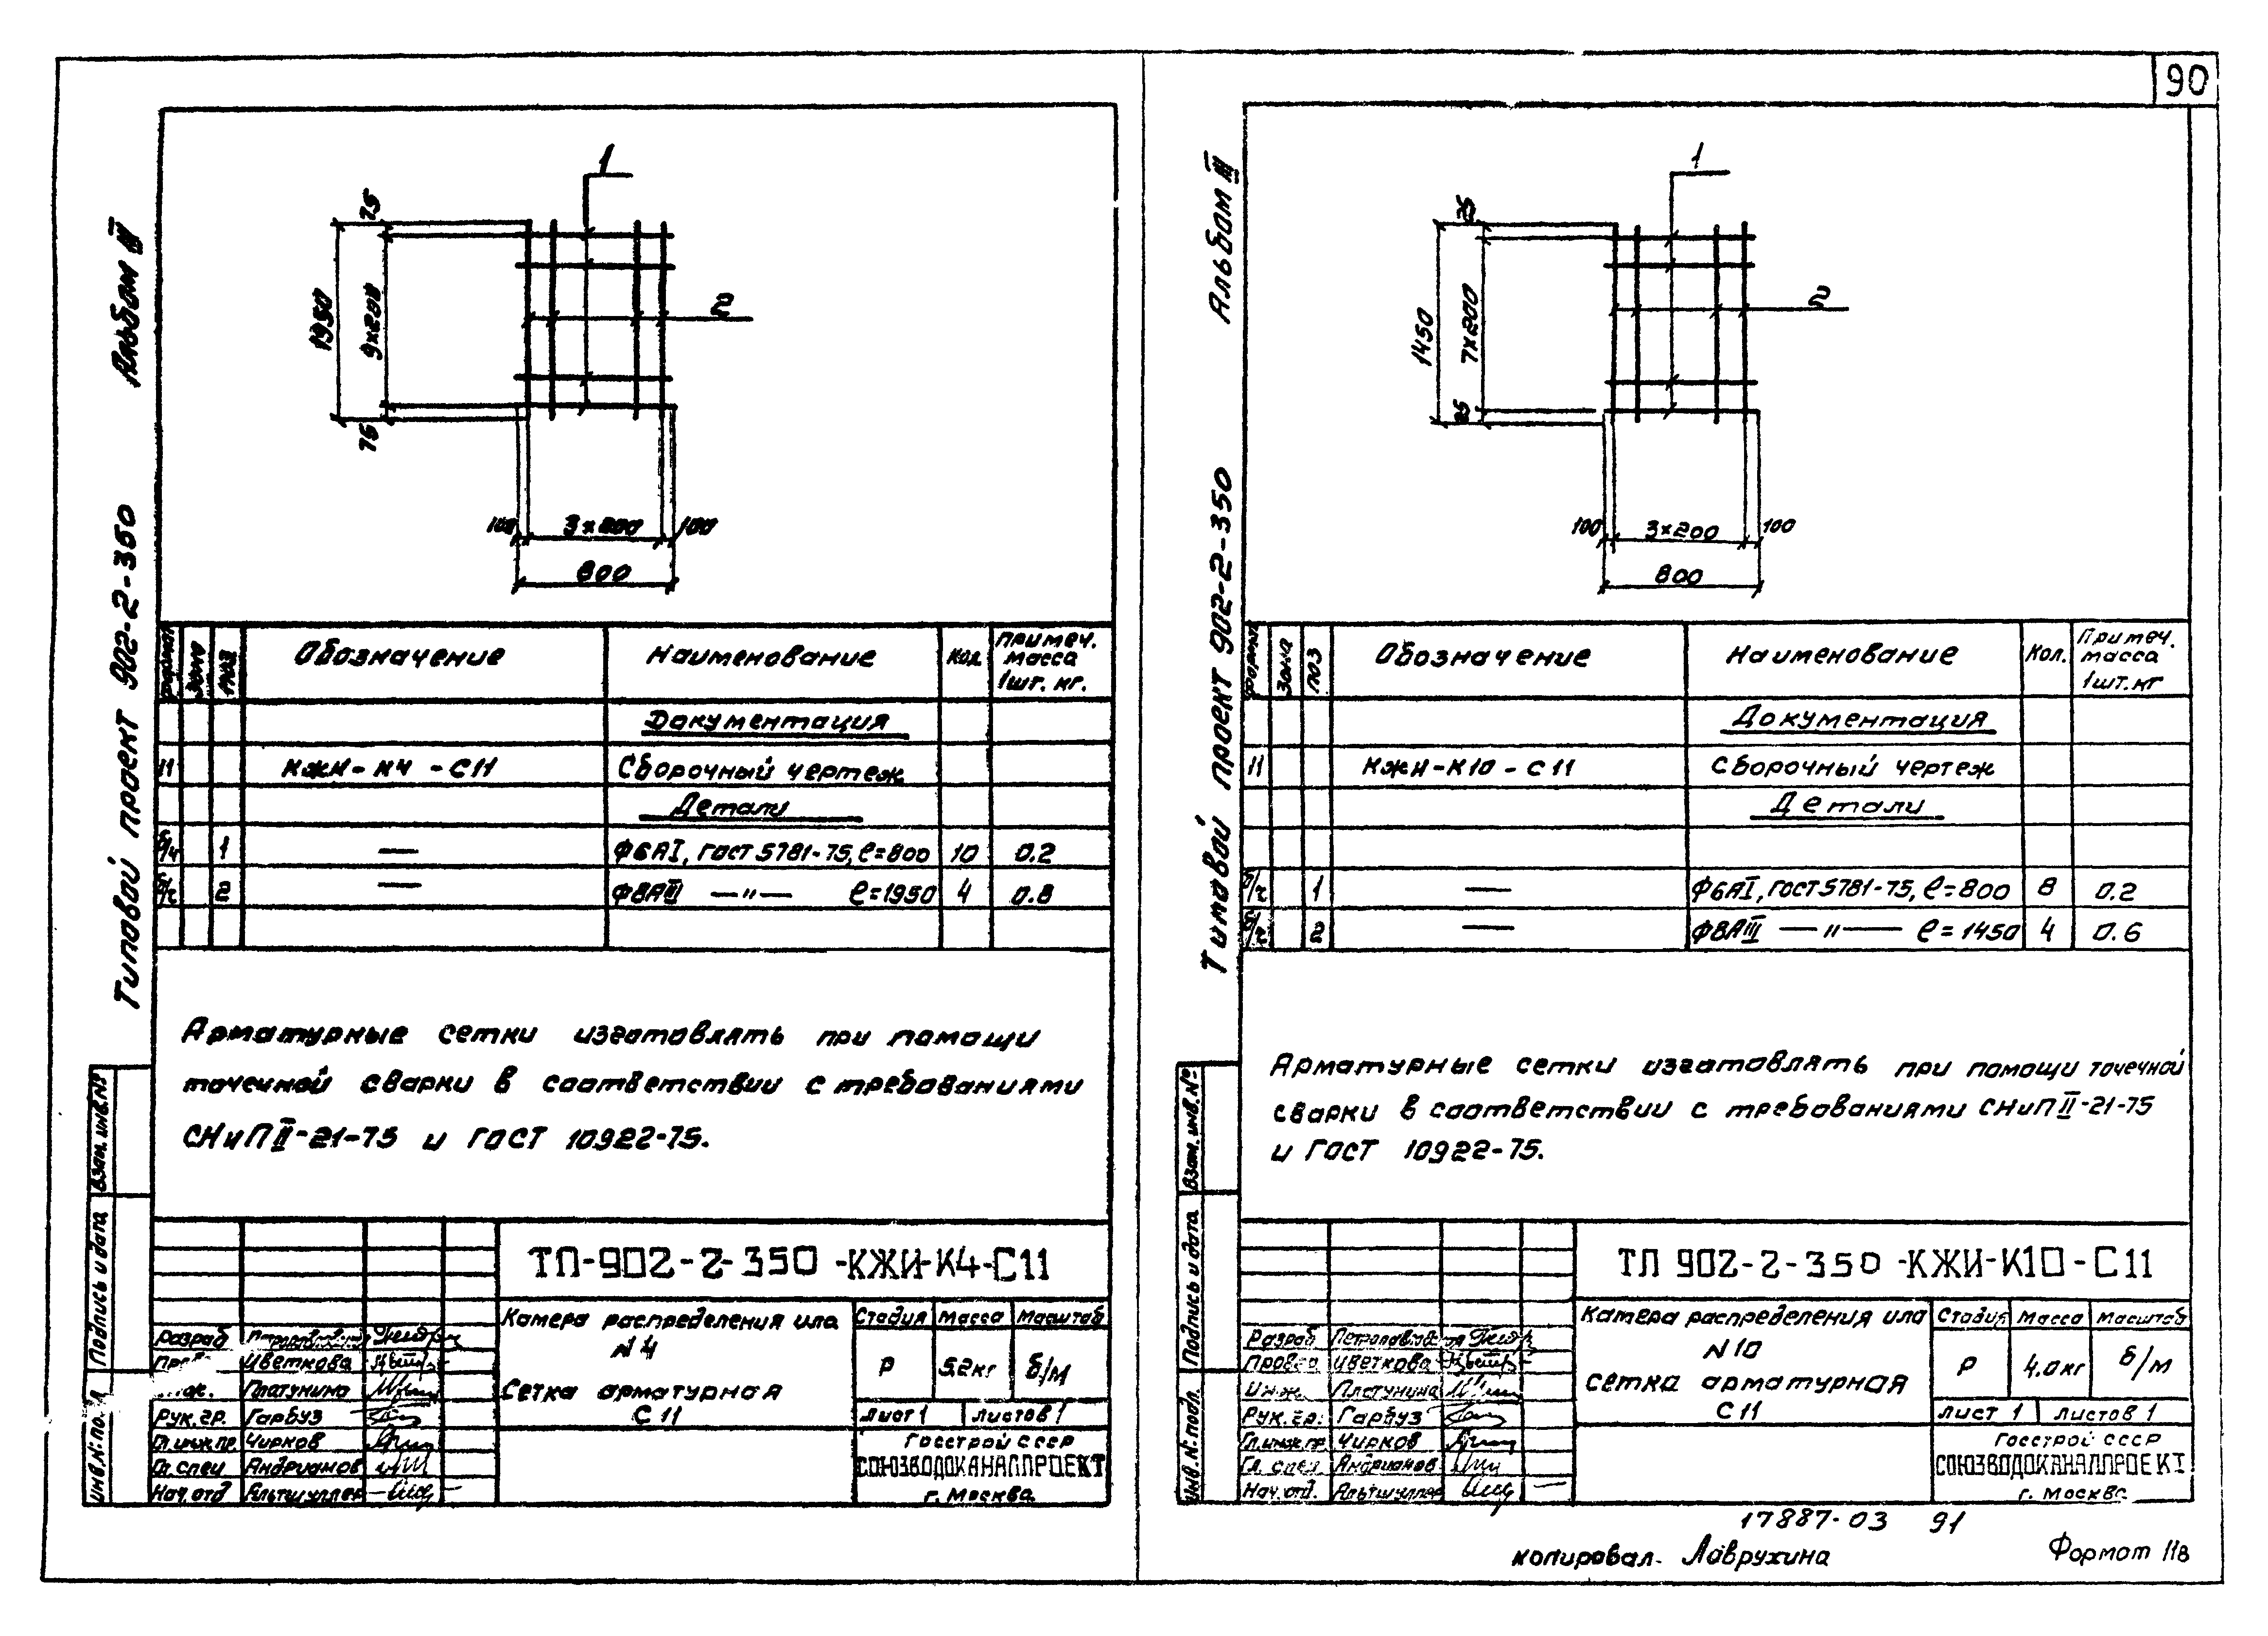 90
Альбом III
Типовой проект 902-2-350
1
75
1950
9×200
75
2
100
3×200
100
800
Формат
Зона
Поз
Обозначение
Наименование
Кол
Примеч. масса 1шт. кг.
Документация
11 КЖИ-К4-С11 Сборочный чертеж
Детали
б/ч 1 — Ф6АI, ГОСТ 5781-75, ℓ=800 10 0.2
б/ч 2 — Ф8АIII —"— ℓ=1950 4 0.8
Арматурные сетки изготовлять при помощи
точечной сварки в соответствии с требованиями
СНиП II-21-75 и ГОСТ 10922-75.
Взам. инв. №
Подпись и дата
ТП-902-2-350-КЖИ-К4-С11
Камера распределения ила
N 4
Сетка арматурная
С11
Стадия Масса Масштаб
Р 5.2кг б/м
Лист 1 Листов 1
Госстрой СССР
СОЮЗВОДОКАНАЛПРОЕКТ
г. Москва
Разраб
Цветкова
Платунина
Рук. гр. Гарбуз
Гл.инж.пр. Чирков
Гл. спец Андрианов
Нач. отд Альтшуллер
Альбом III
Типовой проект 902-2-350
1
25
1450
7×200
25
2
100
3×200
100
800
Формат
Зона
Поз
Обозначение
Наименование
Кол.
Примеч. масса 1шт. кг
Документация
11 КЖИ-К10-С11 Сборочный чертеж
Детали
б/ч 1 — Ф6АI, ГОСТ 5781-75, ℓ=800 8 0.2
б/ч 2 — Ф8АIII —"— ℓ=1450 4 0.6
Арматурные сетки изготовлять при помощи точечной
сварки в соответствии с требованиями СНиП II-21-75
и ГОСТ 10922-75.
Взам. инв. №
Подпись и дата
Инв. № подл.
ТП 902-2-350-КЖИ-К10-С11
Камера распределения ила
N 10
сетка арматурная
С11
Стадия Масса Масштаб
Р 4.0кг б/м
Лист 1 Листов 1
Госстрой СССР
СОЮЗВОДОКАНАЛПРОЕКТ
г. Москва
Разраб. Петропавловская
Провер. Цветкова
Инж. Платунина
Рук. гр. Гарбуз
Гл.инж.пр Чирков
Гл. спец. Андрианов
Нач. отд. Альтшуллер
17887-03 91
копировал Лаврухина
Формат 11в